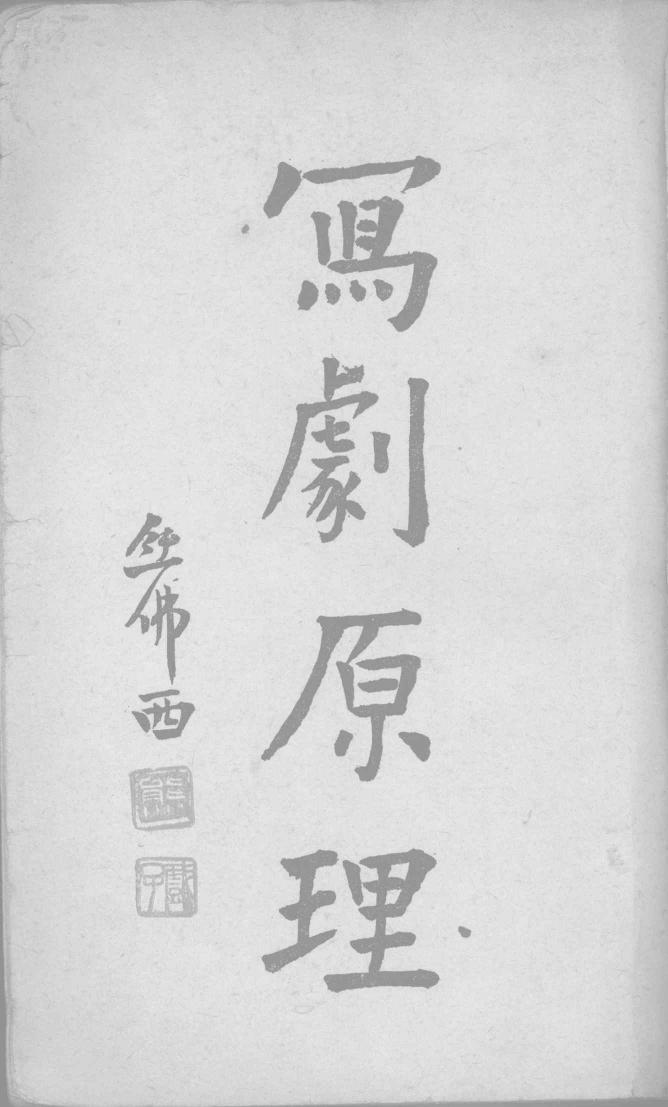 冩劇原理
熊佛西